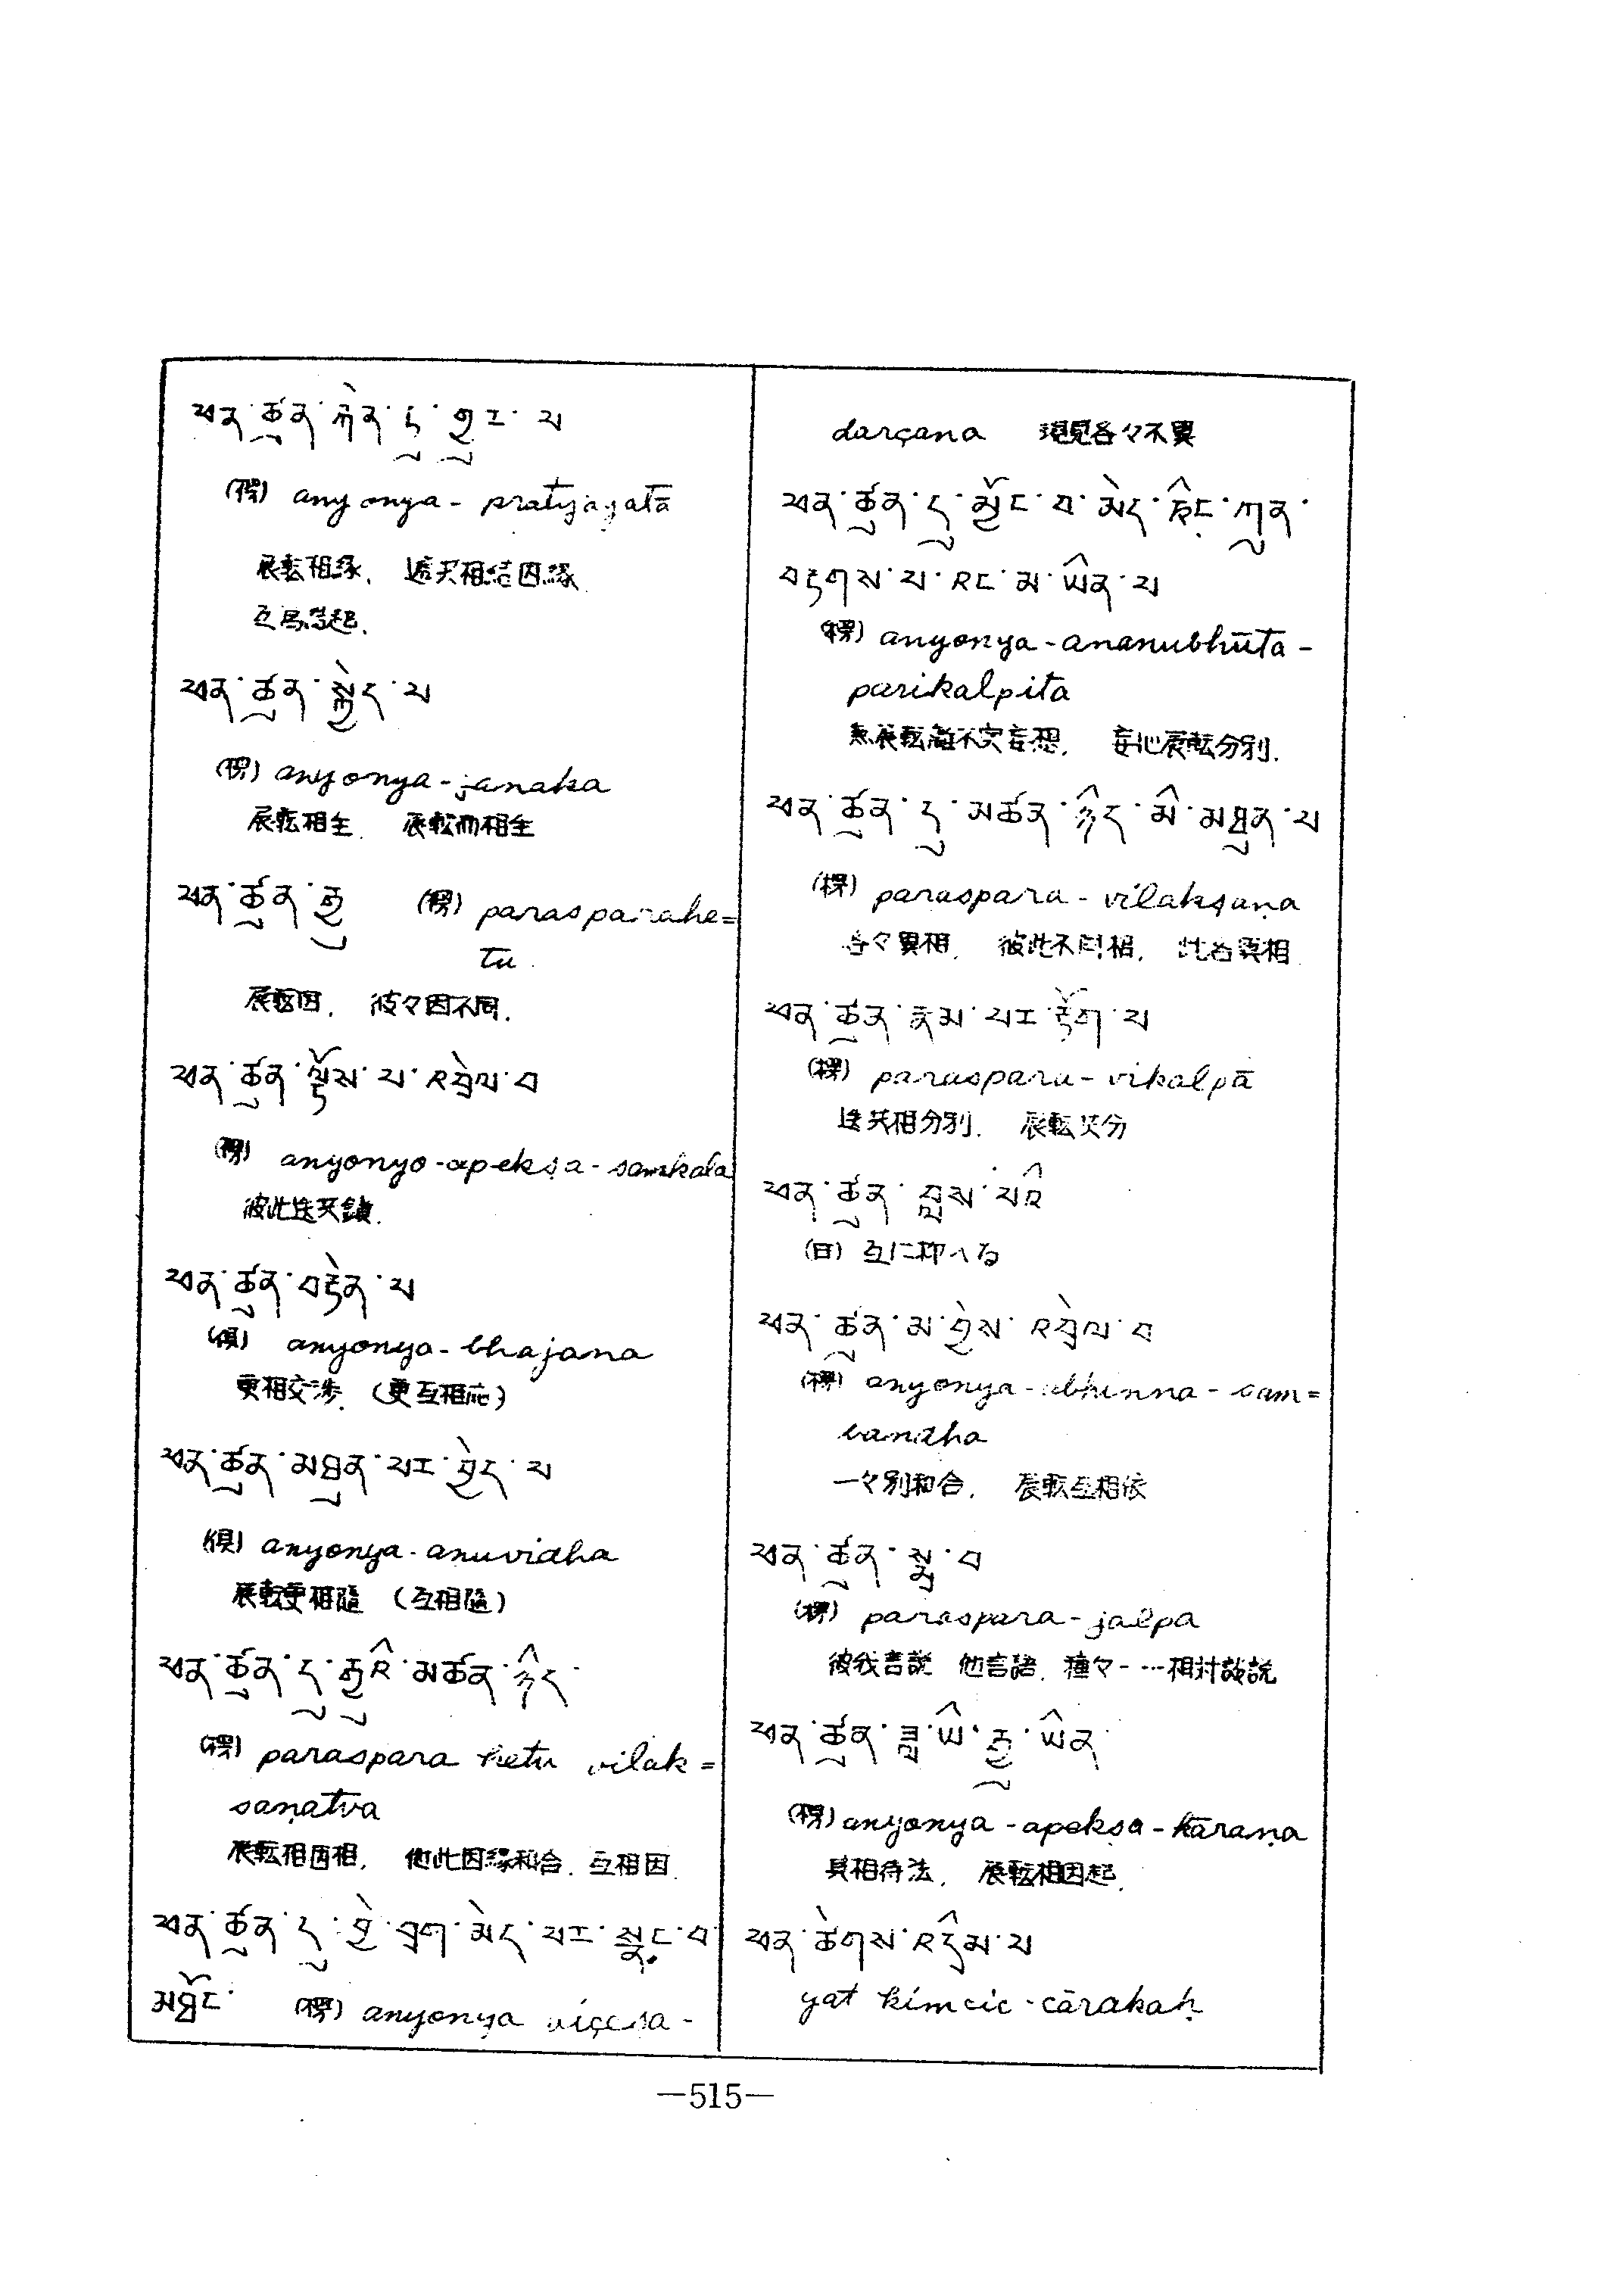 ཕན་ཚུན་རྐེན་དུ་གྱུར་པ
(楞) anyonya - pratyayatā
展転相縁. 遞共相結因縁
互為等起.
ཕན་ཚུན་སྐྱེད་པ
(楞) anyonya - janaka
展転相生. 展転而相生
ཕན་ཚུན་རྒྱུ (楞) parasparahe=
tu.
展転因. 彼々因不同.
ཕན་ཚུན་ལྟོས་པ་འབྲེལ་བ
(楞) anyonyo - apekṣa - samkala
彼此迭共鎖.
ཕན་ཚུན་བརྟེན་པ
(倶) anyonya - bhajana
更相交渉. (更互相応)
ཕན་ཚུན་མཐུན་པར་བྱེད་པ
(倶) anyonya - anuvidha
展転更相隨 (互相隨)
ཕན་ཚུན་དུ་རྒྱུའི་མཚན་ཉིད་
(楞) paraspara hetu vilak =
saṇatva
展転相因相. 他此因縁和合. 互相因.
ཕན་ཚུན་དུ་བྱེ་བྲག་མེད་པར་སྣང་བ་
མཐོང་ (楞) anyonya viçeṣa -
darçana 現見各々不異
ཕན་ཚུན་དུ་མྱོང་བ་མེད་ཅིང་ཀུན་
བརྟགས་པ་འང་མ་ཡིན་པ
(楞) anyonya - ananubhūta -
parikalpita
無展転離不実妄想. 妄心展転分別.
ཕན་ཚུན་དུ་མཚན་ཉིད་མི་མཐུན་པ
(楞) paraspara - vilakṣaṇa
各々異相. 彼此不同相. 此各異相.
ཕན་ཚུན་རྣམ་པར་རྟོག་པ
(楞) paraspara - vikalpā
迭共相分別. 展転共分
ཕན་ཚུན་བླས་པའི
(日) 互に抑へる
ཕན་ཚུན་མ་བྱེས་འབྲེལ་བ
(楞) anyonya - abhinna - sam =
bandha
一々別和合. 展転互相依
ཕན་ཚུན་སྨྲ་བ
(楞) paraspara - jalpa
彼我言説 他言語. 種々- …相対談説
ཕན་ཚུན་ཟླ་ཡི་རྒྱུ་ཡིན་
(楞) anyonya - apekṣa - kāraṇa
異相待法. 展転相因起.
ཕན་ཚེགས་འདྲིམ་པ
yat kimcic - cārakaḥ
—515—